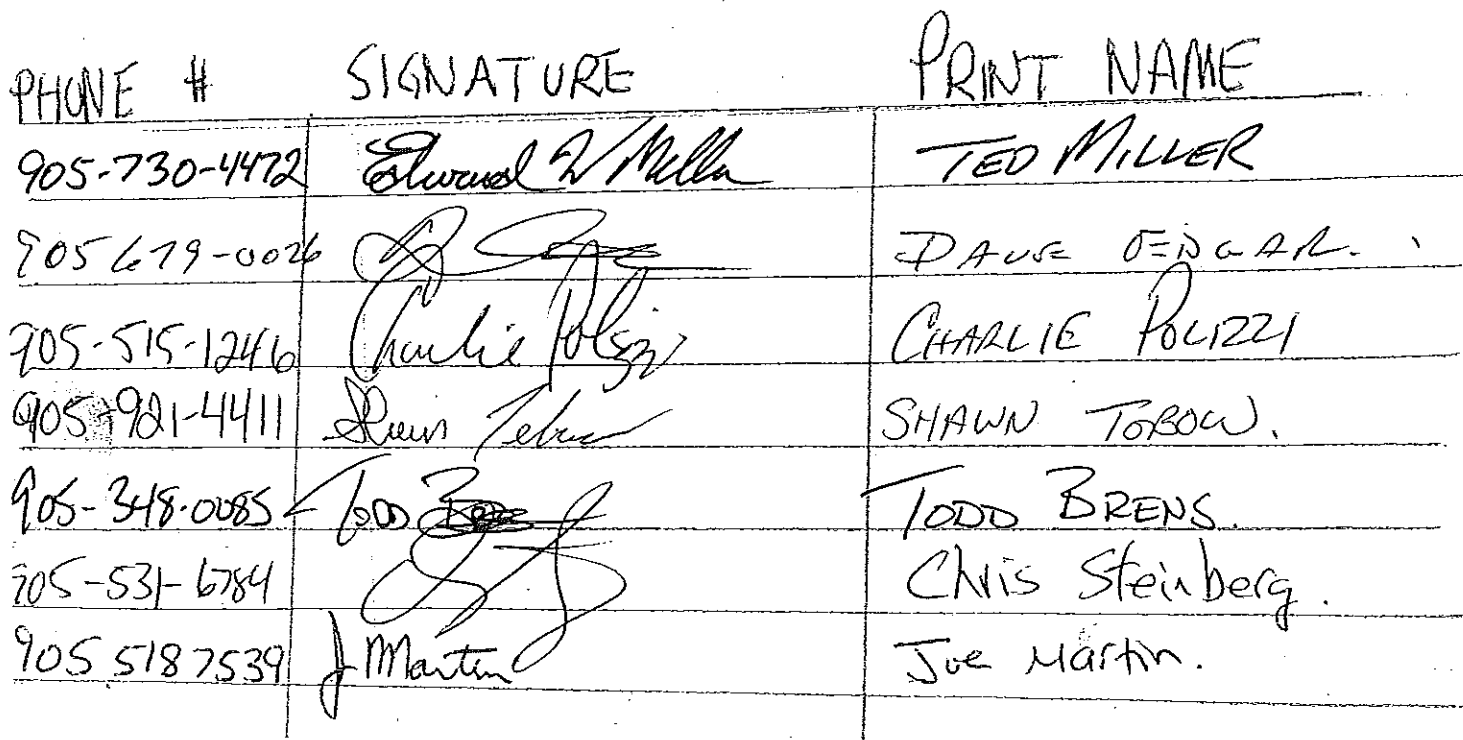 PHONE # SIGNATURE PRINT NAME
905-730-4472 Edward W Miller TED MILLER
905 679-0026 DAVE
905-515-1246 Charlie Polizzi CHARLIE POLIZZI
905-921-4411 Shawn SHAWN TOBOW.
905-348-0085 TODD TODD BRENS.
905-531-6784 Chris Steinberg.
905 518 7539 J Martin Joe Martin.